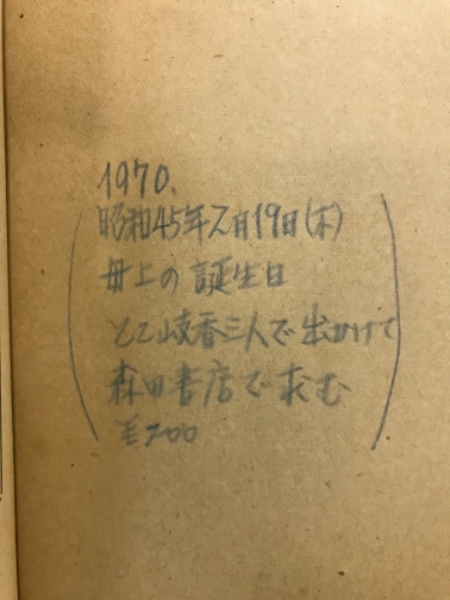 1970.
昭和45年2月19日(木)
母上の誕生日
岐香三人で出かけて
森田書店で求む
¥200